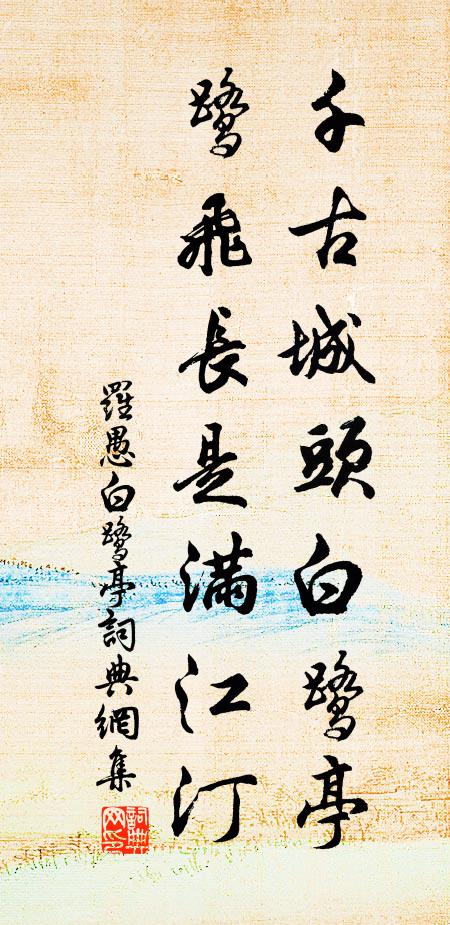 千古城頭白鷺亭
鷺飛長是滿江汀
羅愚白鷺亭詞典網集
詞典網印